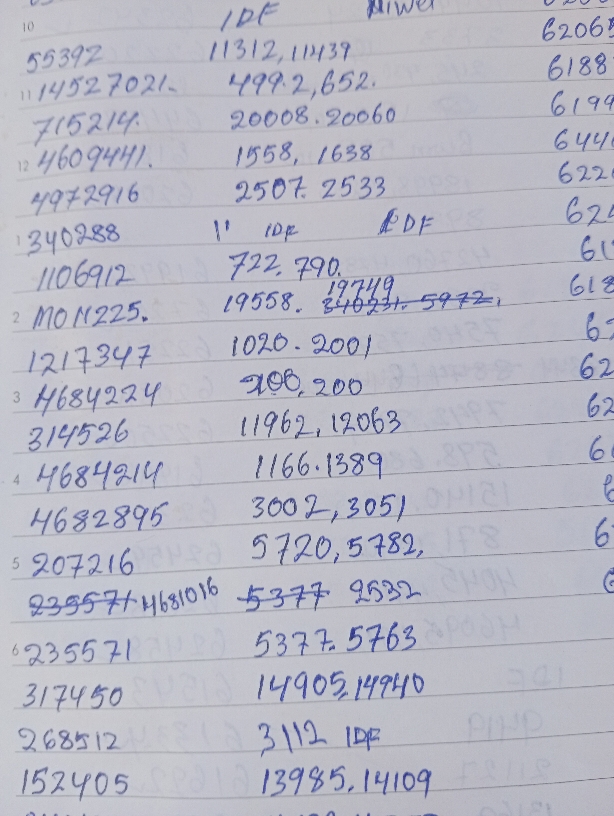 10 IDF
55392 11312, 11439 6206
11 14527021. 499.2, 652. 6188
715214. 20008. 20060 6199
12 4609441. 1558, 1638 644
4972916 2507. 2533 622
1 340288 11 IDF IDF 62
1106912 722. 790. 61
19749
2 MON225. 19558. 340231. 5972, 618
1217347 1020. 2001 62
3 4684224 200, 200 62
314526 11962, 12063 62
4 4684214 1166. 1389 6
4682895 3002, 3051 6
5 207216 5720, 5782, 6
235571 4681016 5377 2532 6
6 235571 5377. 5763
317450 14905, 14940
268512 3112 IDF
152405 13985. 14109